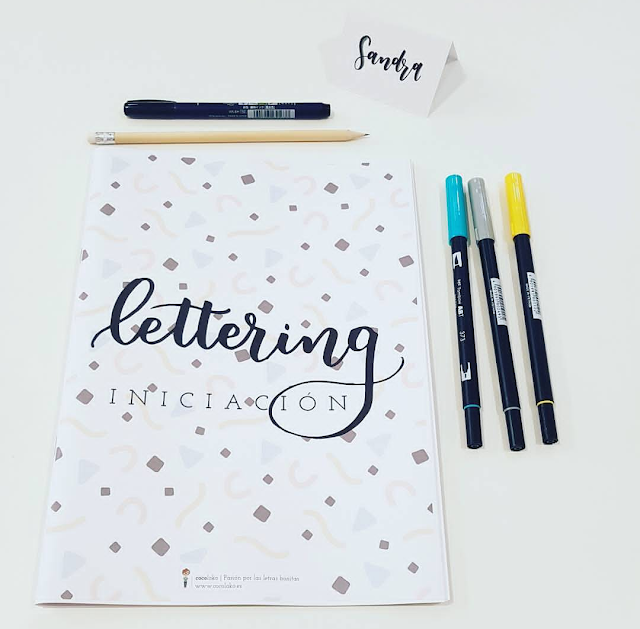 Sandra
lettering
INICIACIÓN
cocoloko | Pasión por las letras bonitas
www.cocoloko.es
573